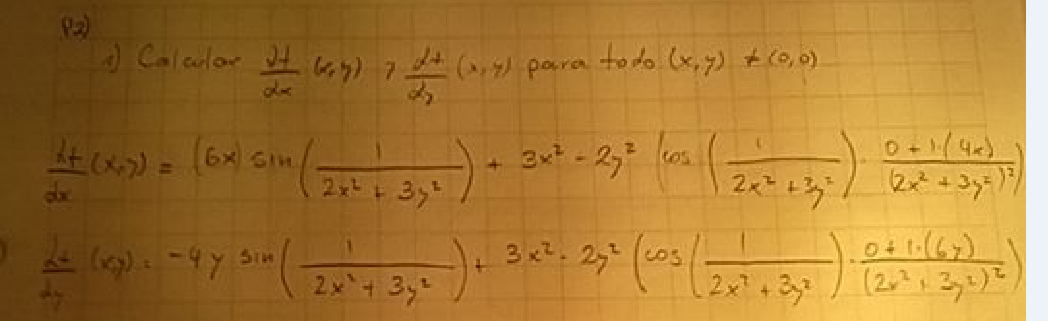 P2)
i) Calcular df/dx (x,y) y df/dy (x,y) para todo (x,y) ≠ (0,0)
df/dx (x,y) = (6x) sin (1/(2x² + 3y²)) + 3x² - 2y² (cos (1/(2x² + 3y²)) · (0 + 1·(4x))/(2x² + 3y²)²)
df/dy (x,y) = -4y sin (1/(2x² + 3y²)) + 3x² - 2y² (cos (1/(2x² + 3y²)) · (0 + 1·(6y))/(2x² + 3y²)²)